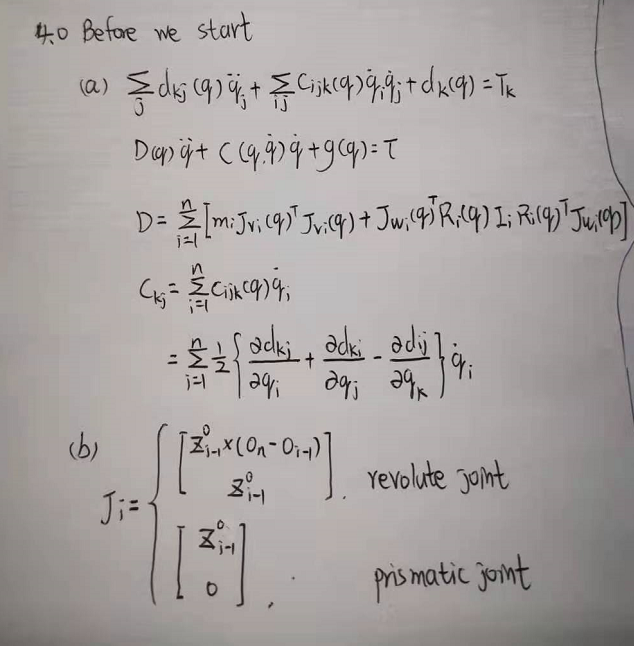 4.0 Before we start
(a) ∑_j d_kj(q) q̈_j + ∑_ij C_ijk(q) q̇_i q̇_j + d_k(q) = τ_k
D(q) q̈ + C(q, q̇) q̇ + g(q) = τ
D = ∑_{i=1}^{n} [m_i J_vi(q)^T J_vi(q) + J_wi(q)^T R_i(q) I_i R_i(q)^T J_wi(q)]
C_kj = ∑_{i=1}^{n} C_ijk(q) q̇_i
= ∑_{i=1}^{n} 1/2 { ∂d_kj/∂q_i + ∂d_ki/∂q_j - ∂d_ij/∂q_k } q̇_i
(b) J_i = { [ Z^0_{i-1} × (O_n - O_{i-1}) ; Z^0_{i-1} ] . revolute joint
[ Z^0_{i-1} ; 0 ] , prismatic joint